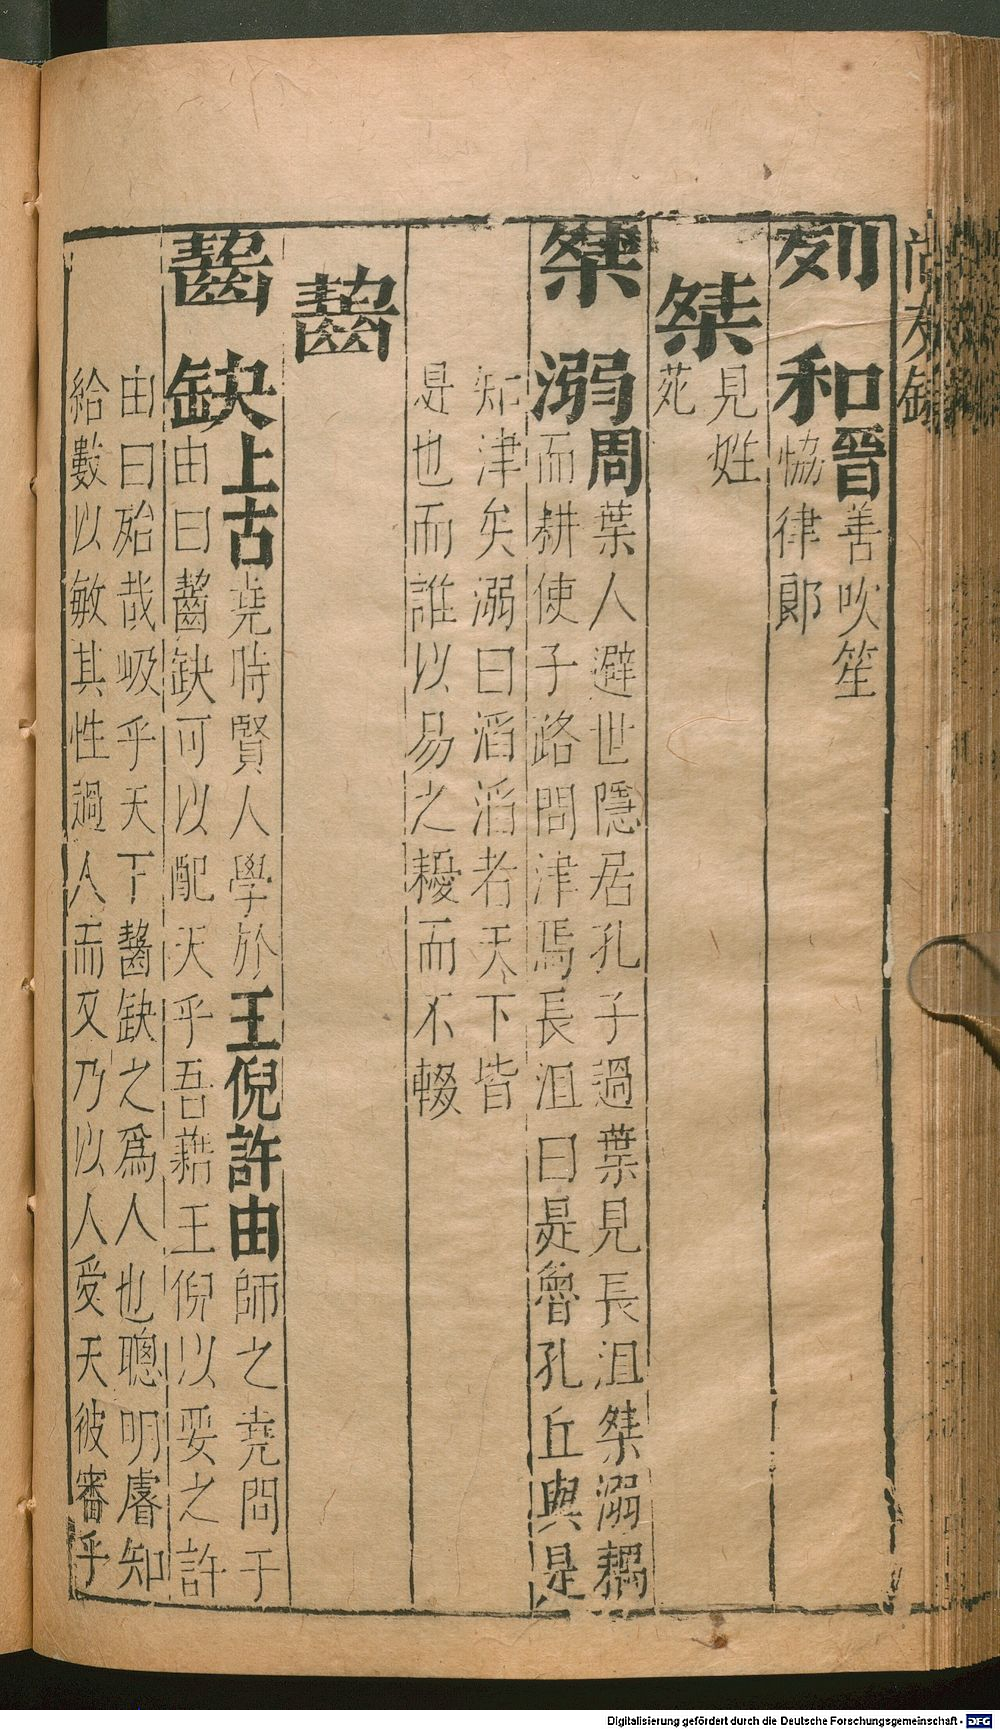 尚友錄
列和晉善吹笙
協律郎
桀見姓
苑
桀溺周葉人避世隱居孔子過葉見長沮桀溺耦
而耕使子路問津焉長沮曰是魯孔丘與是
知津矣溺曰滔滔者天下皆
是也而誰以易之耰而不輟
齧
齧缺上古堯時賢人學於王倪許由師之堯問于
由曰齧缺可以配天乎吾藉王倪以要之許
由曰殆哉岌乎天下齧缺之爲人也聰明睿知
給數以敏其性過人而又乃以人受天彼審乎
Digitalisierung gefördert durch die Deutsche Forschungsgemeinschaft - DFG